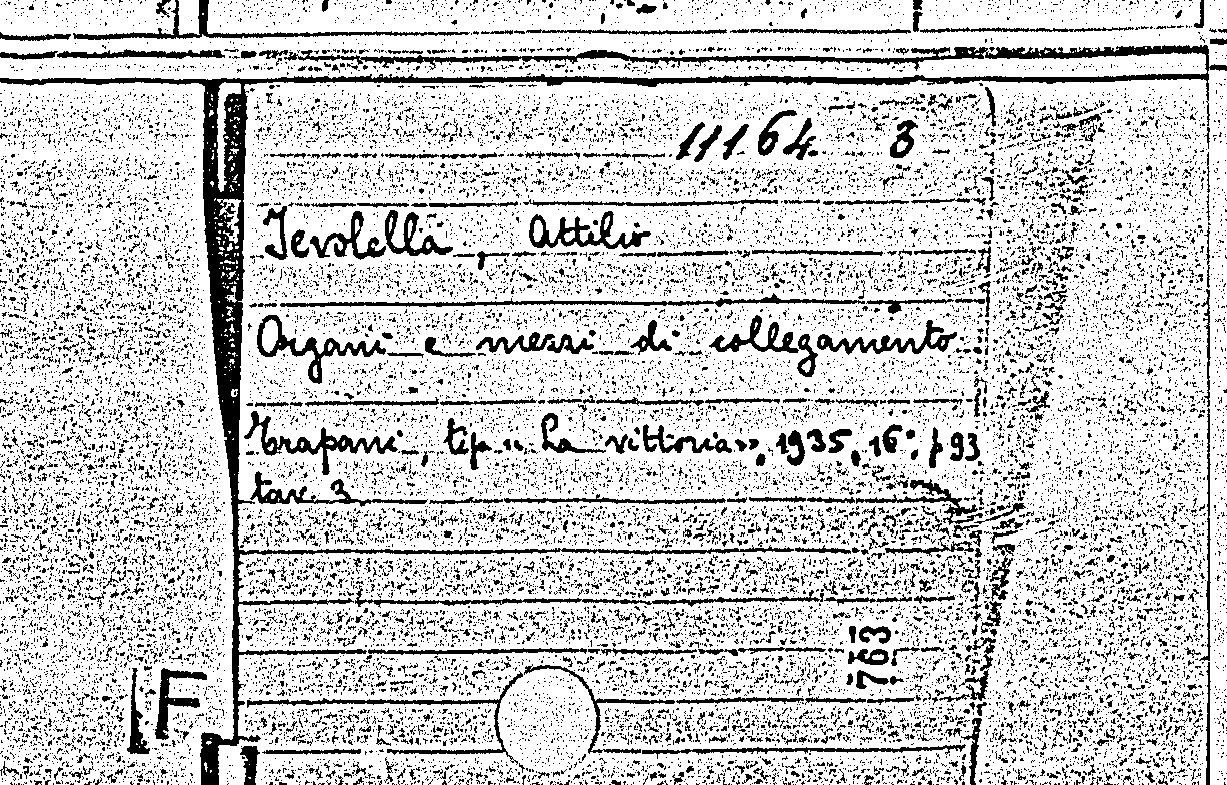 11164 3
Jevolella, Attilio
Organi e mezzi di collegamento
Trapani, tip. «La vittoria», 1935, 16°, p 93
tav. 3
763
F